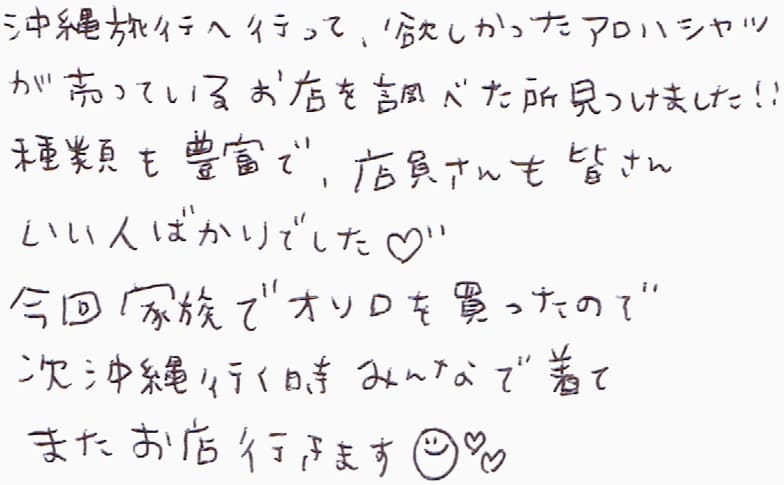 沖縄旅行へ行って、欲しかったアロハシャツ
が売っているお店を調べた所見つけました!!
種類も豊富で、店員さんも皆さん
いい人ばかりでした♡"
今回家族でオソロを買ったので
次沖縄行く時みんなで着て
またお店行きます☺♡♡